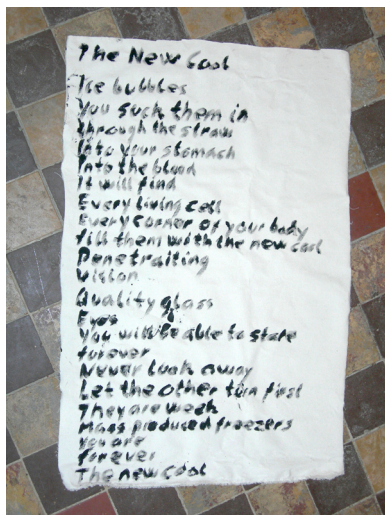 The New Cool
Ice bubbles
You suck them in
through the straw
Into your stomach
Into the blood
It will find
Every living cell
Every corner of your body
fill them with the new cool
Penetraiting
vision
Quality glass
Eyes
You will be able to stare
forever
Never look away
Let the other turn first
They are weak
Mass produced freezers
you are
forever
The new cool